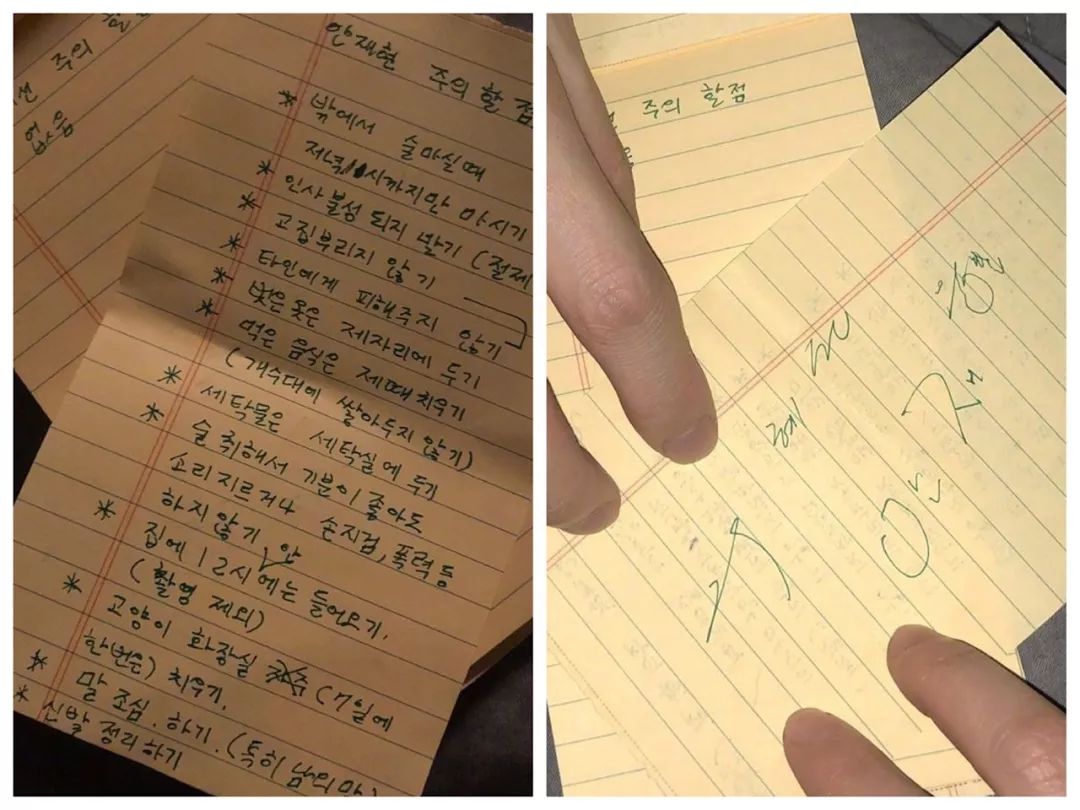 주의
없음
안재현 주의 할 점
* 밖에서 술마실때
저녁 11시까지만 마시기
* 인사불성 되지 말기 (절제
* 고집부리지 않기
* 타인에게 피해주지 않기
* 벗은 옷은 제자리에 두기
* 먹은 음식은 제때 치우기
(개수대에 쌓아두지 않기)
* 세탁물은 세탁실에 두기
* 술 취해서 기분이 좋아도
소리지르거나 손지검, 폭력등
하지 않기
* 집에 12시 안에는 들어오기.
(촬영 제외)
* 고양이 화장실 (7일에
한(번은) 치우기.
* 말 조심. 하기. (특히 남의 말)
* 신발 정리하기
주의 할 점
구혜선
안재현